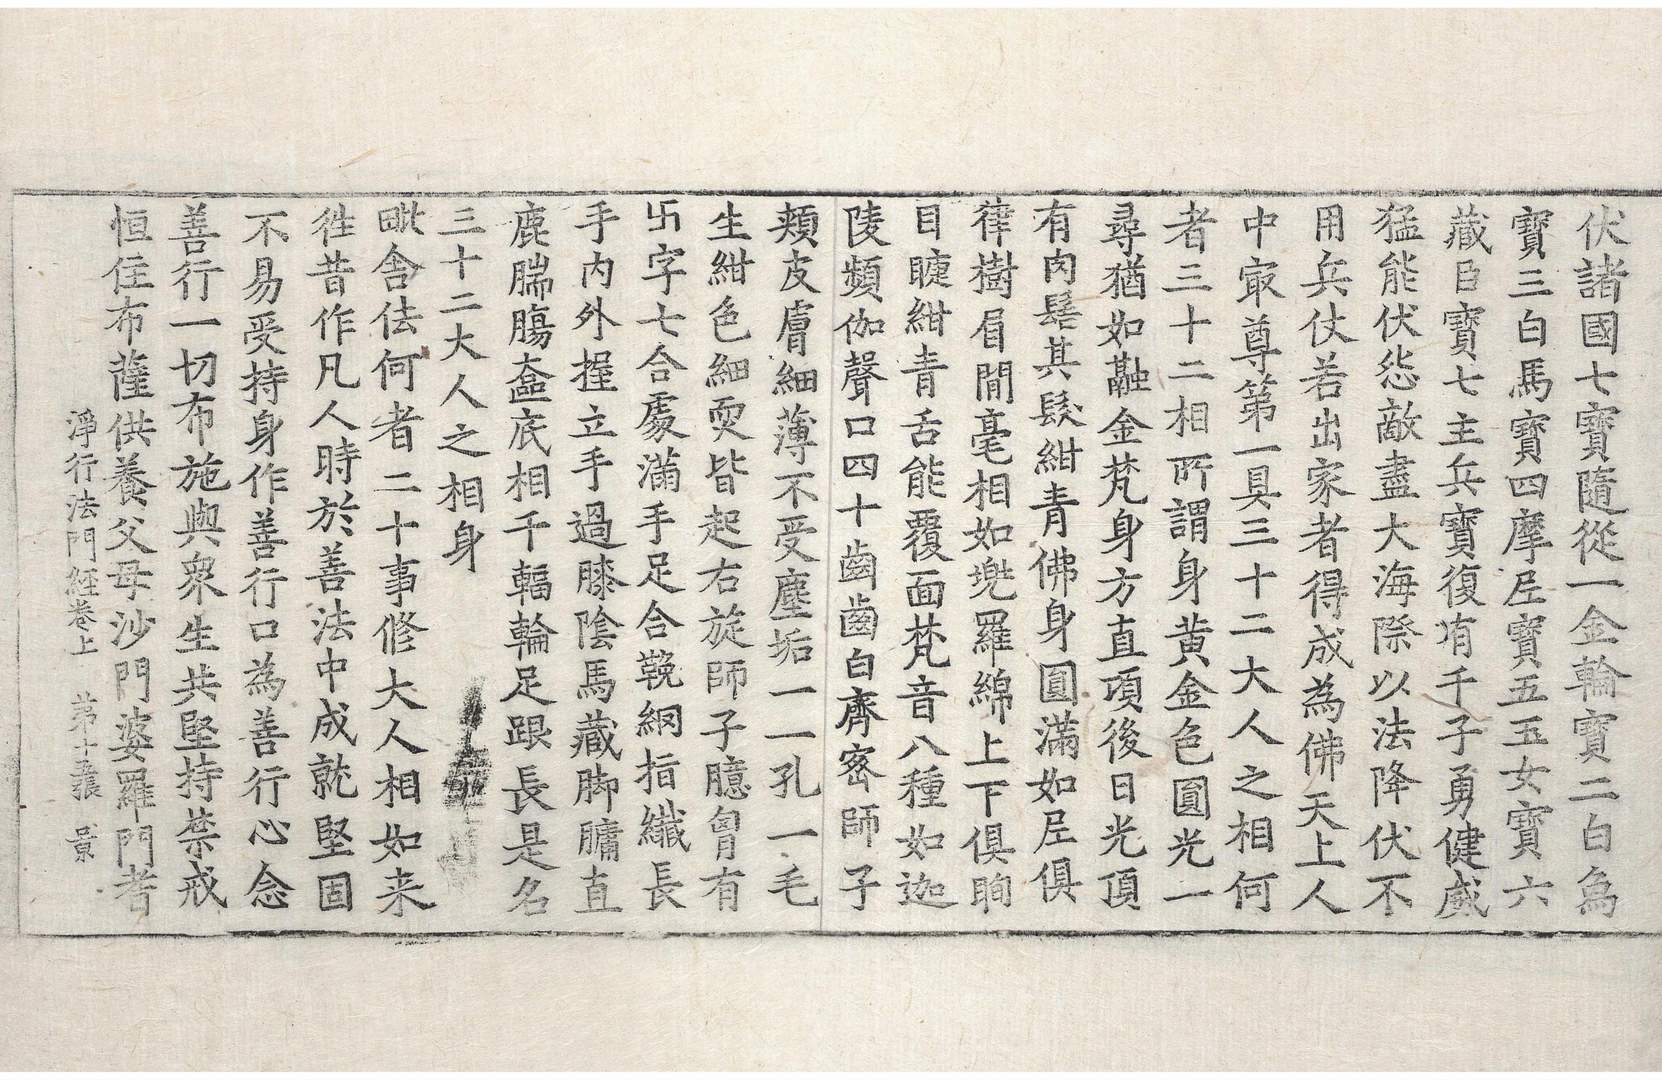 伏諸國七寶隨從一金輪寶二白為
寶三白馬寶四摩𡰱寶五玉女寶六
藏臣寶七主兵寶復有千子勇健威
猛能伏怨敵盡大海際以法降伏不
用兵仗若出家者得成為佛天上人
中㝡尊第一具三十二大人之相何
者三十二相所謂身黄金色圓光一
尋猶如融金梵身方直項後日光頂
有肉髻其髮紺青佛身圓滿如𡰱俱
律樹眉間毫相如兠羅綿上下俱眴
目睫紺青舌能覆面梵音八種如迦
陵頻伽聲口四十齒齒白齊密師子
頰皮膚細薄不受塵垢一一孔一毛
生紺色細耎皆起右旋師子臆胷有
卐字七合處滿手足合鞔網指纖長
手内外握立手過膝陰馬藏脚𨄔直
鹿腨腸奩底相千輻輪足跟長是名
三十二大人之相身
毗舍佉何者二十事修大人相如来
徃昔作凡人時於善法中成就堅固
不易受持身作善行口為善行心念
善行一切布施與衆生共堅持禁戒
恒住布薩供養父母沙門婆羅門者
淨行法門經卷上 第十五張 景